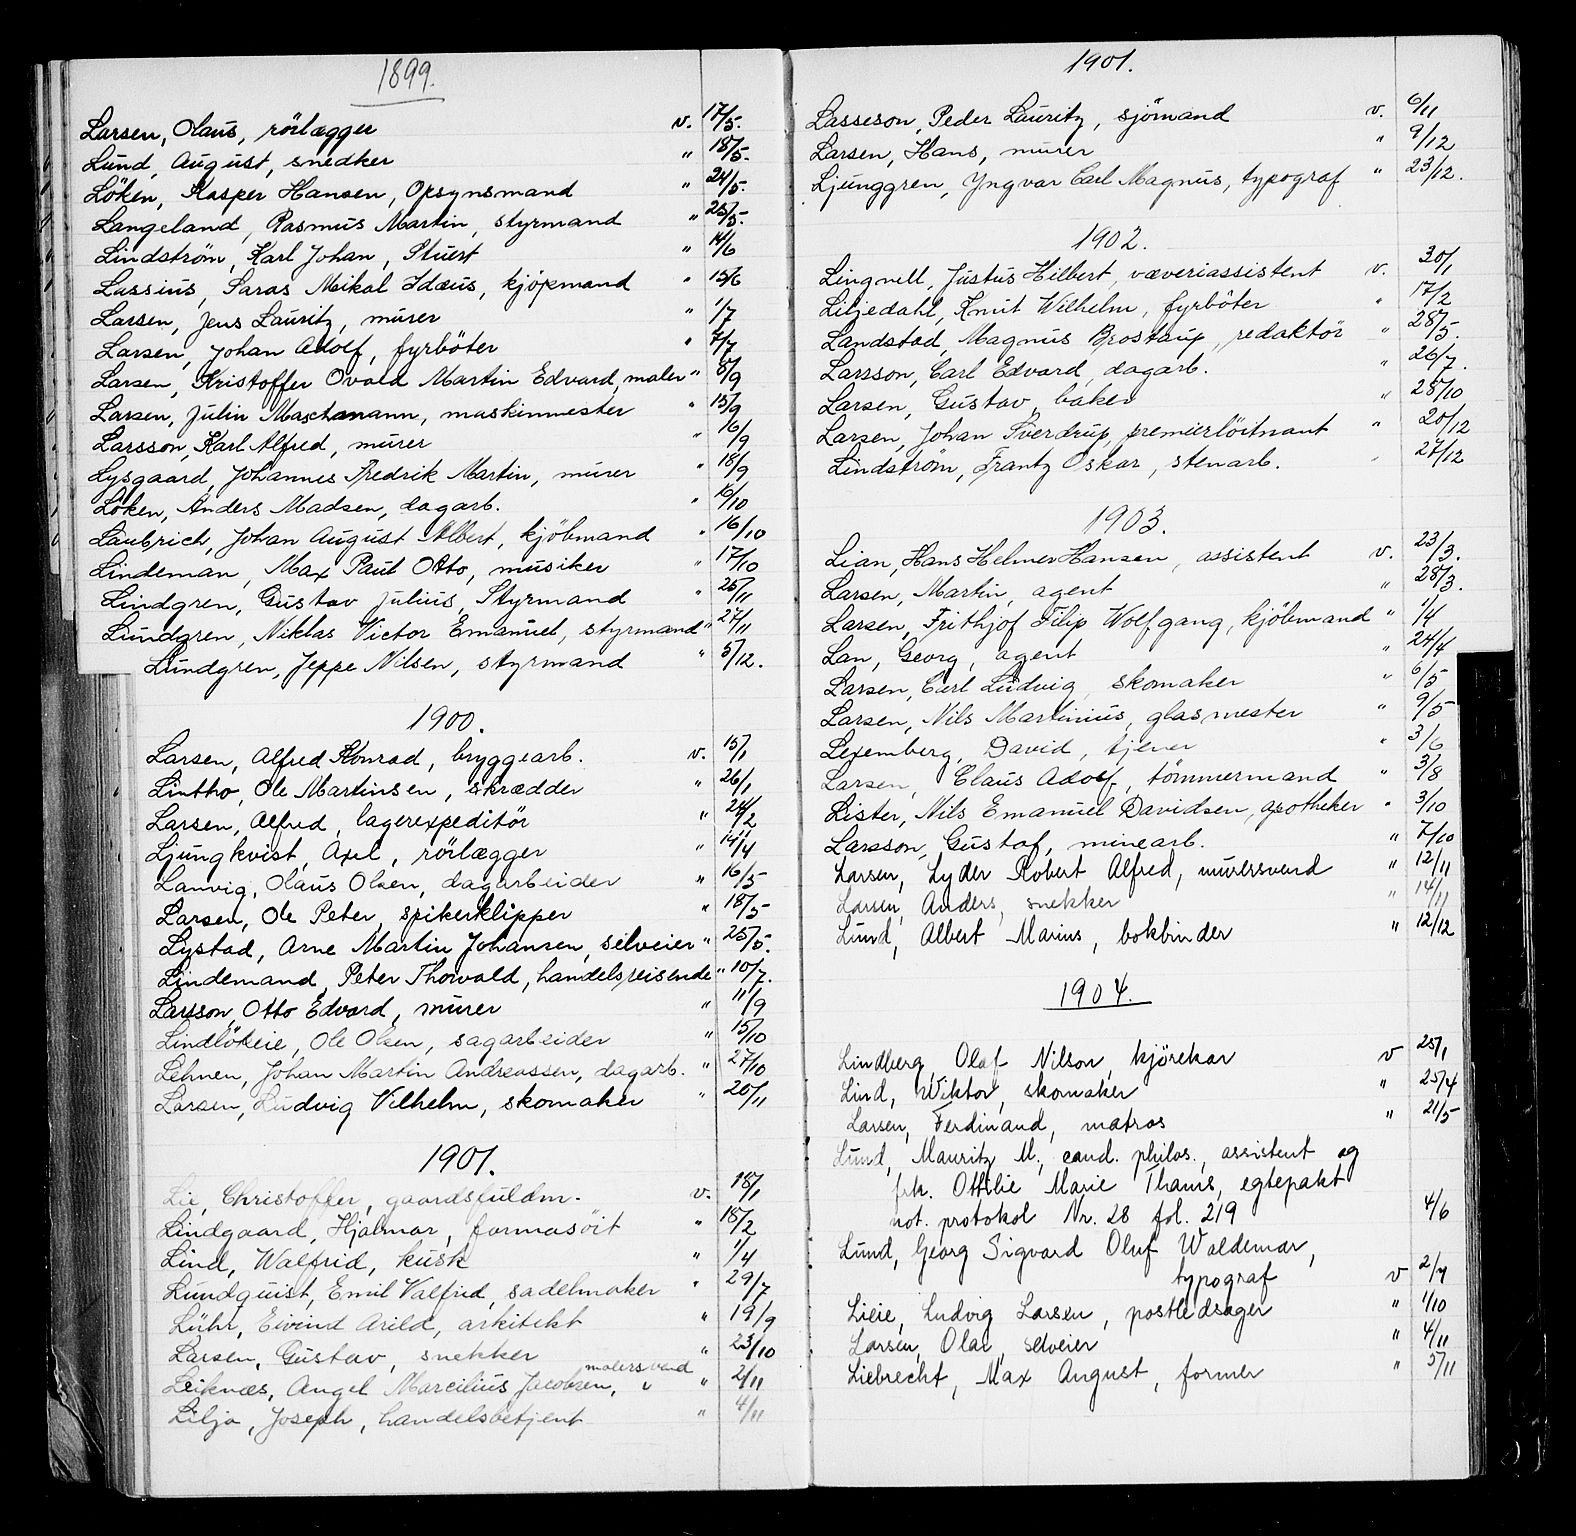 1899.
Larsen, Olaus, rörlægger v. 17/5.
Lund, August, snedker " 18/5.
Löken, Kasper Hansen, Opsynsmand " 24/5.
Langeland, Rasmus Martin, styrmand " 25/5.
Lindström, Karl Johan, Stuert " 14/6
Lassius, Saras Mikal Idæus, kjöpmand " 15/6
Larsen, Jens Lauritz, murer " 1/7
Larsen, Johan Adolf, fyrböter " 7/7
Larsen, Kristoffer Ovald Martin Edvard, maler " 8/9
Larsen, Julin Maschmann, maskinmester " 15/9
Larsson, Karl Alfred, murer " 16/9
Lysgaard, Johannes Fredrik Martin, murer " 18/9
Löken, Anders Madsen, dagarb. " 16/10
Laubrich, Johan August Albert, kjöbmand " 16/10
Lindeman, Max Paul Otto, musiker " 17/10
Lindgren, Gustav Julius, Styrmand " 25/11
Lundgren, Niklas Victor Emanuel, styrmand " 27/11
Lundgren, Jeppe Nilsen, styrmand " 5/12.
1900.
Larsen, Alfred Konrad, bryggearb. v. 15/1
Lintho, Ole Martinsen, skrædder " 26/1
Larsen, Alfred, lagerexpeditör " 24/2
Ljungkvist, Axel, rörlægger " 14/4
Lanvig, Olaus Olsen, dagarbeider " 16/5
Larsen, Ole Peter, spikerklipper " 18/5
Lystad, Arne Martin Johansen, selveier " 25/5.
Lindemand, Peter Thorvald, handelsreisende " 10/7.
Larsson, Otto Edvard, murer " 11/9
Lindlökeie, Ole Olsen, sagarbeider " 15/10
Lehnen, Johan Martin Andreassen, dagarb. " 27/10
Larsen, Ludvig Vilhelm, skomaker " 20/11
1901.
Lie, Christoffer, gaardsfuldm. v. 18/1
Lindgaard, Hjalmar, farmasöit " 18/2
Lind, Walfrid, kusk " 1/4
Lundquist, Emil Valfrid, sadelmaker " 29/7
Lühr, Eivind Arild, arkitekt " 19/9
Larsen, Gustav, snekker " 23/10
malersvend
Leiknæs, Angel Marcilius Jacobsen, " 2/11
Lilja, Joseph, handelsbetjent " 4/11
1901.
Lasseson, Peder Lauritz, sjömand v. 6/11
Larsen, Hans, murer " 9/12
Ljunggren, Yngvar Carl Magnus, typograf " 23/12.
1902.
Lingnell, Justus Hilbert, væveriassistent v. 30/1
Liljedahl, Knut Wilhelm, fyrböter " 17/2
Landstad, Magnus Brostrup, redaktör " 28/5.
Larsson, Carl Edvard, dagarb. " 26/7.
Larsen, Gustav, baker " 28/10
Larsen, Johan Sverdrup, premierlöitnant " 20/12
Lindström, Frantz Oskar, stenarb. " 27/12
1903.
Lian, Hans Helmer Hansen, assistent v. 23/3.
Larsen, Martin, agent " 28/3.
Larsen, Frithjof Filip Wolfgang, kjöbmand " 1/4
Lan, Georg, agent " 24/4
Larsen, Carl Ludvig, skomaker " 6/5
Larsen, Nils Martinius, glasmester " 9/5
Lexemberg, David, tjener " 3/6
Larsen, Claus Adolf, tömmermand " 3/8
Lister, Nils Emanuel Davidsen, apotheker " 3/10
Larsson, Gustaf, minearb. " 7/10
Larsen, Lyder Robert Alfred, murersvend " 12/11
Larsen, Anders, snekker " 14/11
Lund, Albert Marius, bokbinder " 12/12
1904.
Lindberg, Olaf Nilson, kjörekar v 25/1
Lind, Wiktor, skomaker " 25/4
Larsen, Ferdinand, matros " 21/5
Lund, Mauritz M., cand. philos., assistent og
frk. Ottilie Marie Thams, egtepakt
not. protokol Nr. 28 fol. 219 4/6
Lund, Georg Sigvard Oluf Waldemar,
typograf v 2/7
Lieie, Ludvig Larsen, postledsager " 1/10
Larsen, Olai, selveier " 4/11
Liebrecht, Max August, former " 5/11